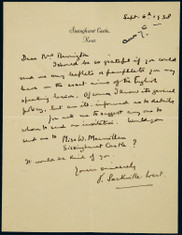 Sissinghurst Castle,
Kent.
Sept. 6th 1938
Dear Miss Pennington
I should be so grateful if you could
send me any leaflets or pamphlets you may
have on the exact aims of the English
speaking Union. Of course I know its general
policy, but am ill-informed as to details
you ask me to suggest any one to
whom to send an invitation. Would you
send one to Miss W. Macmillan
Sissinghurst Castle ?
It would be kind of you.
Yours sincerely
V. Sackville West.